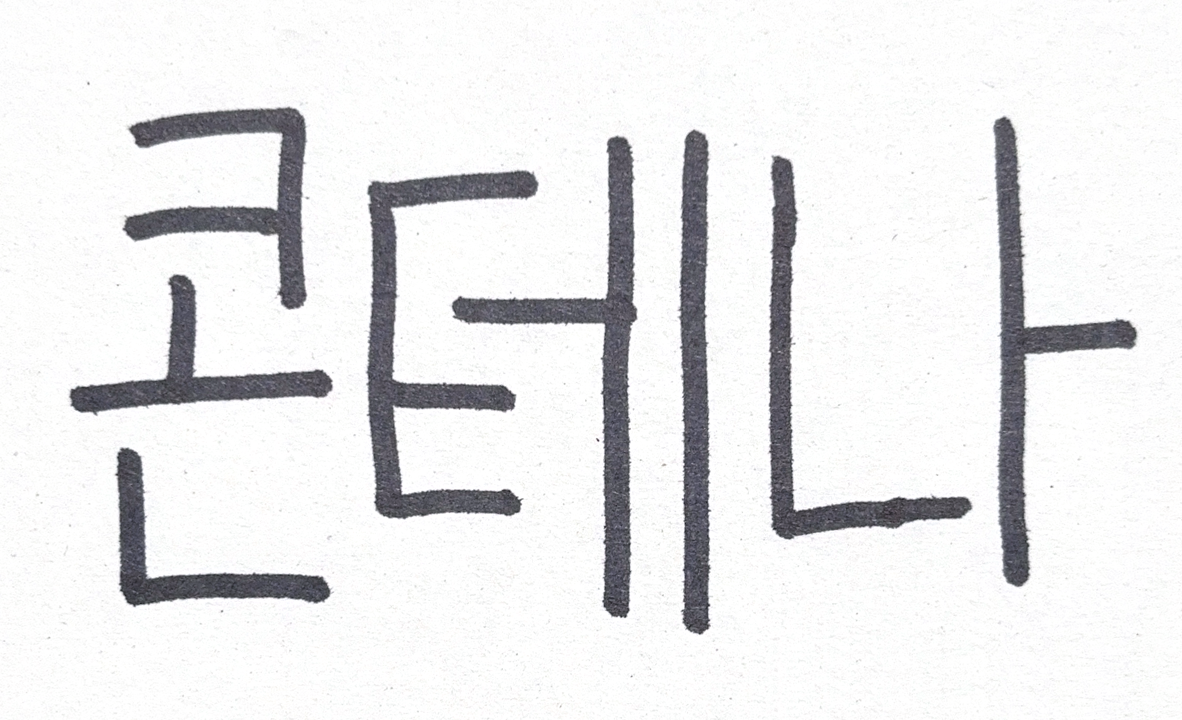 콘테나